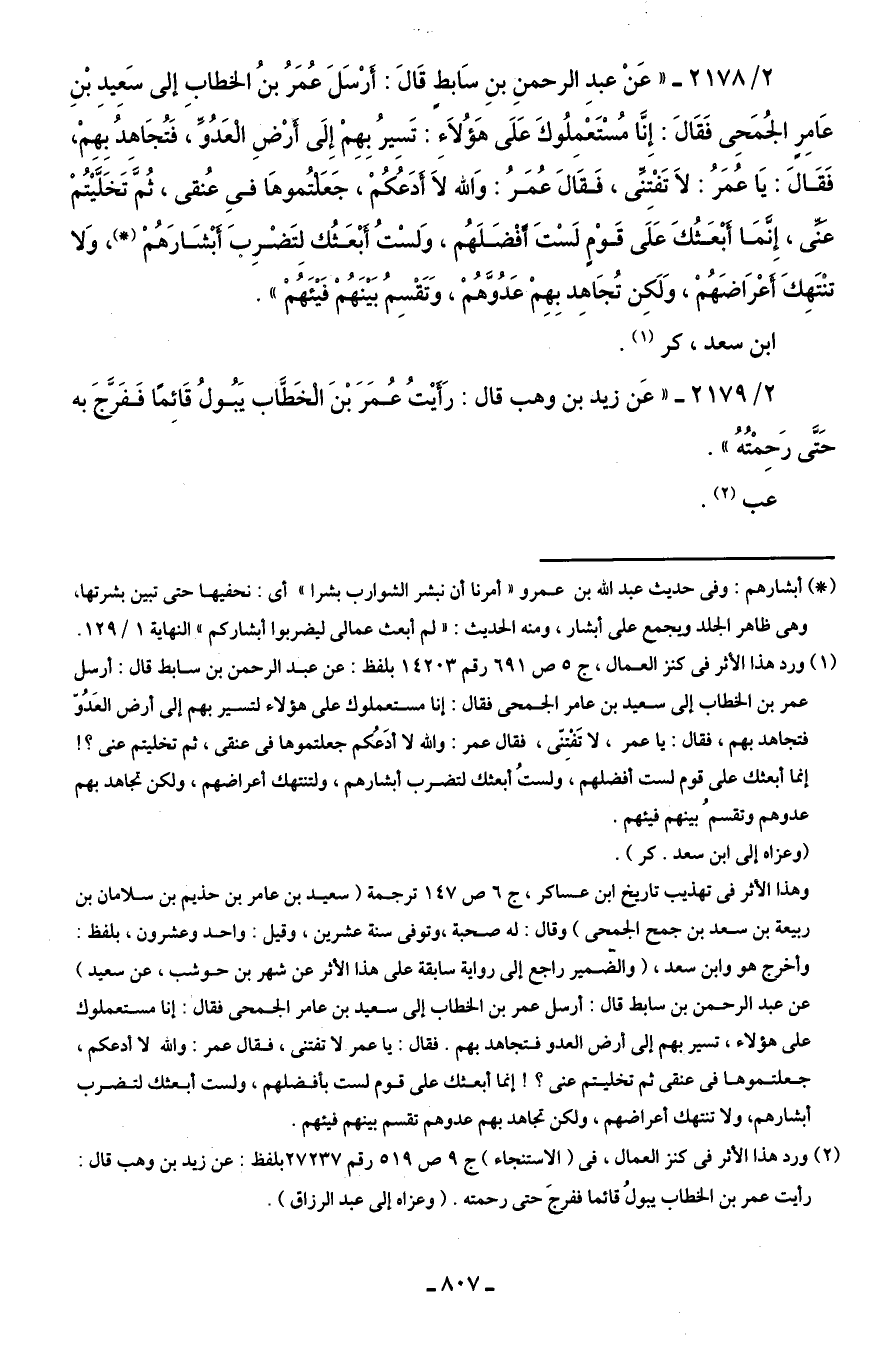 ٢/ ٢١٧٨ ـ « عَنْ عبد الرحمن بنِ سَابطٍ قَالَ : أَرْسَلَ عُمَرُ بنُ الخطاب إلى سَعِيدِ بْنِ
عَامرِ الجُمَحى فَقَالَ : إنَّا مُسْتَعْملُوكَ عَلَى هَؤُلاَءِ : تَسيرُ بِهِمْ إلَى أَرْضِ العَدُوِّ ، فَتُجَاهدُ بِهِمْ،
فَقَالَ : يَا عُمَرُ : لاَ تَفْتنِّى ، فَقَالَ عُمَرُ : وَالله لاَ أَدَعُكُمْ ، جَعَلْتُموهَا فى عُنقى ، ثُمَّ تَخَلَّيْتُمْ
عَنِّى ، إنَّمَا أَبْعَثُكَ عَلَى قَوْمٍ لَسْتَ أَفْضَلَهُم ، ولَسْتُ أَبْعَثُك لتَضْرِبَ أَبْشَارَهُمْ (*)، وَلا
تنْتَهِكَ أَعْرَاضَهُمْ ، وَلَكِن تُجَاهد بِهِمْ عَدُوَّهُمْ ، وَتَقْسِم بَيْنَهُمْ فَيْئَهُمْ » .
ابن سعد ، كر (١) .
٢/ ٢١٧٩ ـ « عَن زيد بن وهب قال : رَأَيْتُ عُمَرَ بْنَ الْخَطَّاب يَبُولُ قَائمًا فَفَرَّجَ به
حَتَّى رَحِمْتُهُ » .
عب (٢) .
(*) أبشارهم : وفى حديث عبد الله بن عمرو « أمرنا أن نبشر الشوارب بشرا » أى : نحفيها حتى تبين بشرتها،
وهى ظاهر الجلد ويجمع على أبشار ، ومنه الحديث : « لم أبعث عمالى ليضربوا أبشاركم » النهاية ١ / ١٢٩.
(١) ورد هذا الأثر فى كنز العمال ، ج ٥ ص ٦٩١ رقم ١٤٢٠٣ بلفظ : عن عبد الرحمن بن سابط قال : أرسل
عمر بن الخطاب إلى سعيد بن عامر الجمحى فقال : إنا مستعملوك على هؤلاء لتسير بهم إلى أرض العَدُوّ
فتجاهد بهم ، فقال : يا عمر ، لا تَفْتنّى ، فقال عمر : والله لا أدَعُكم جعلتموها فى عنقى ، ثم تخليتم عنى ؟!
إنما أبعثك على قوم لست أفضلهم ، ولستُ أبعثك لتضرب أبشارهم ، ولتنتهك أعراضهم ، ولكن تجاهد بهم
عدوهم وتقسمُ بينهم فيئهم .
(وعزاه إلى ابن سعد . كر ) .
وهذا الأثر فى تهذيب تاريخ ابن عساكر ، ج ٦ ص ١٤٧ ترجمة ( سعيد بن عامر بن حذيم بن سلامان بن
ربيعة بن سعد بن جمح الجمحى ) وقال : له صحبة ،وتوفى سنة عشرين ، وقيل : واحد وعشرون ، بلفظ :
وأخرج هو وابن سعد ، ( والضمير راجع إلى رواية سابقة على هذا الأثر عن شهر بن حوشب ، عن سعيد )
عن عبد الرحمن بن سابط قال : أرسل عمر بن الخطاب إلى سعيد بن عامر الجمحى فقال : إنا مستعملوك
على هؤلاء ، تسير بهم إلى أرض العدو فتجاهد بهم . فقال : يا عمر لا تفتنى ، فقال عمر : والله لا أدعكم ،
جعلتموها فى عنقى ثم تخليتم عنى ؟ ! إنما أبعثك على قوم لست بأفضلهم ، ولست أبعثك لتضرب
أبشارهم، ولا تنتهك أعراضهم ، ولكن تجاهد بهم عدوهم تقسم بينهم فيئهم .
(٢) ورد هذا الأثر فى كنز العمال ، فى ( الاستنجاء ) ج ٩ ص ٥١٩ رقم ٢٧٢٣٧بلفظ : عن زيد بن وهب قال :
رأيت عمر بن الخطاب يبولُ قائما ففرجَ حتى رحمته . ( وعزاه إلى عبد الرزاق ) .
ـ ٨٠٧ ـ